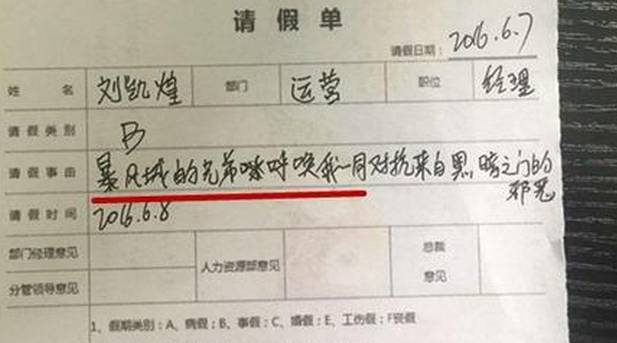 请假单
请假日期：2016.6.7
姓名 刘凯煌 部门 运营 职位 经理
请假类别 B
请假事由 暴风城的兄弟呼唤我一同对抗来自黑暗之门的
邪恶
请假时间 2016.6.8
部门经理意见 人力资源部意见 总裁
意见
分管领导意见
1、假期类别：A、病假；B、事假；C、婚假；E、工伤假；F丧假